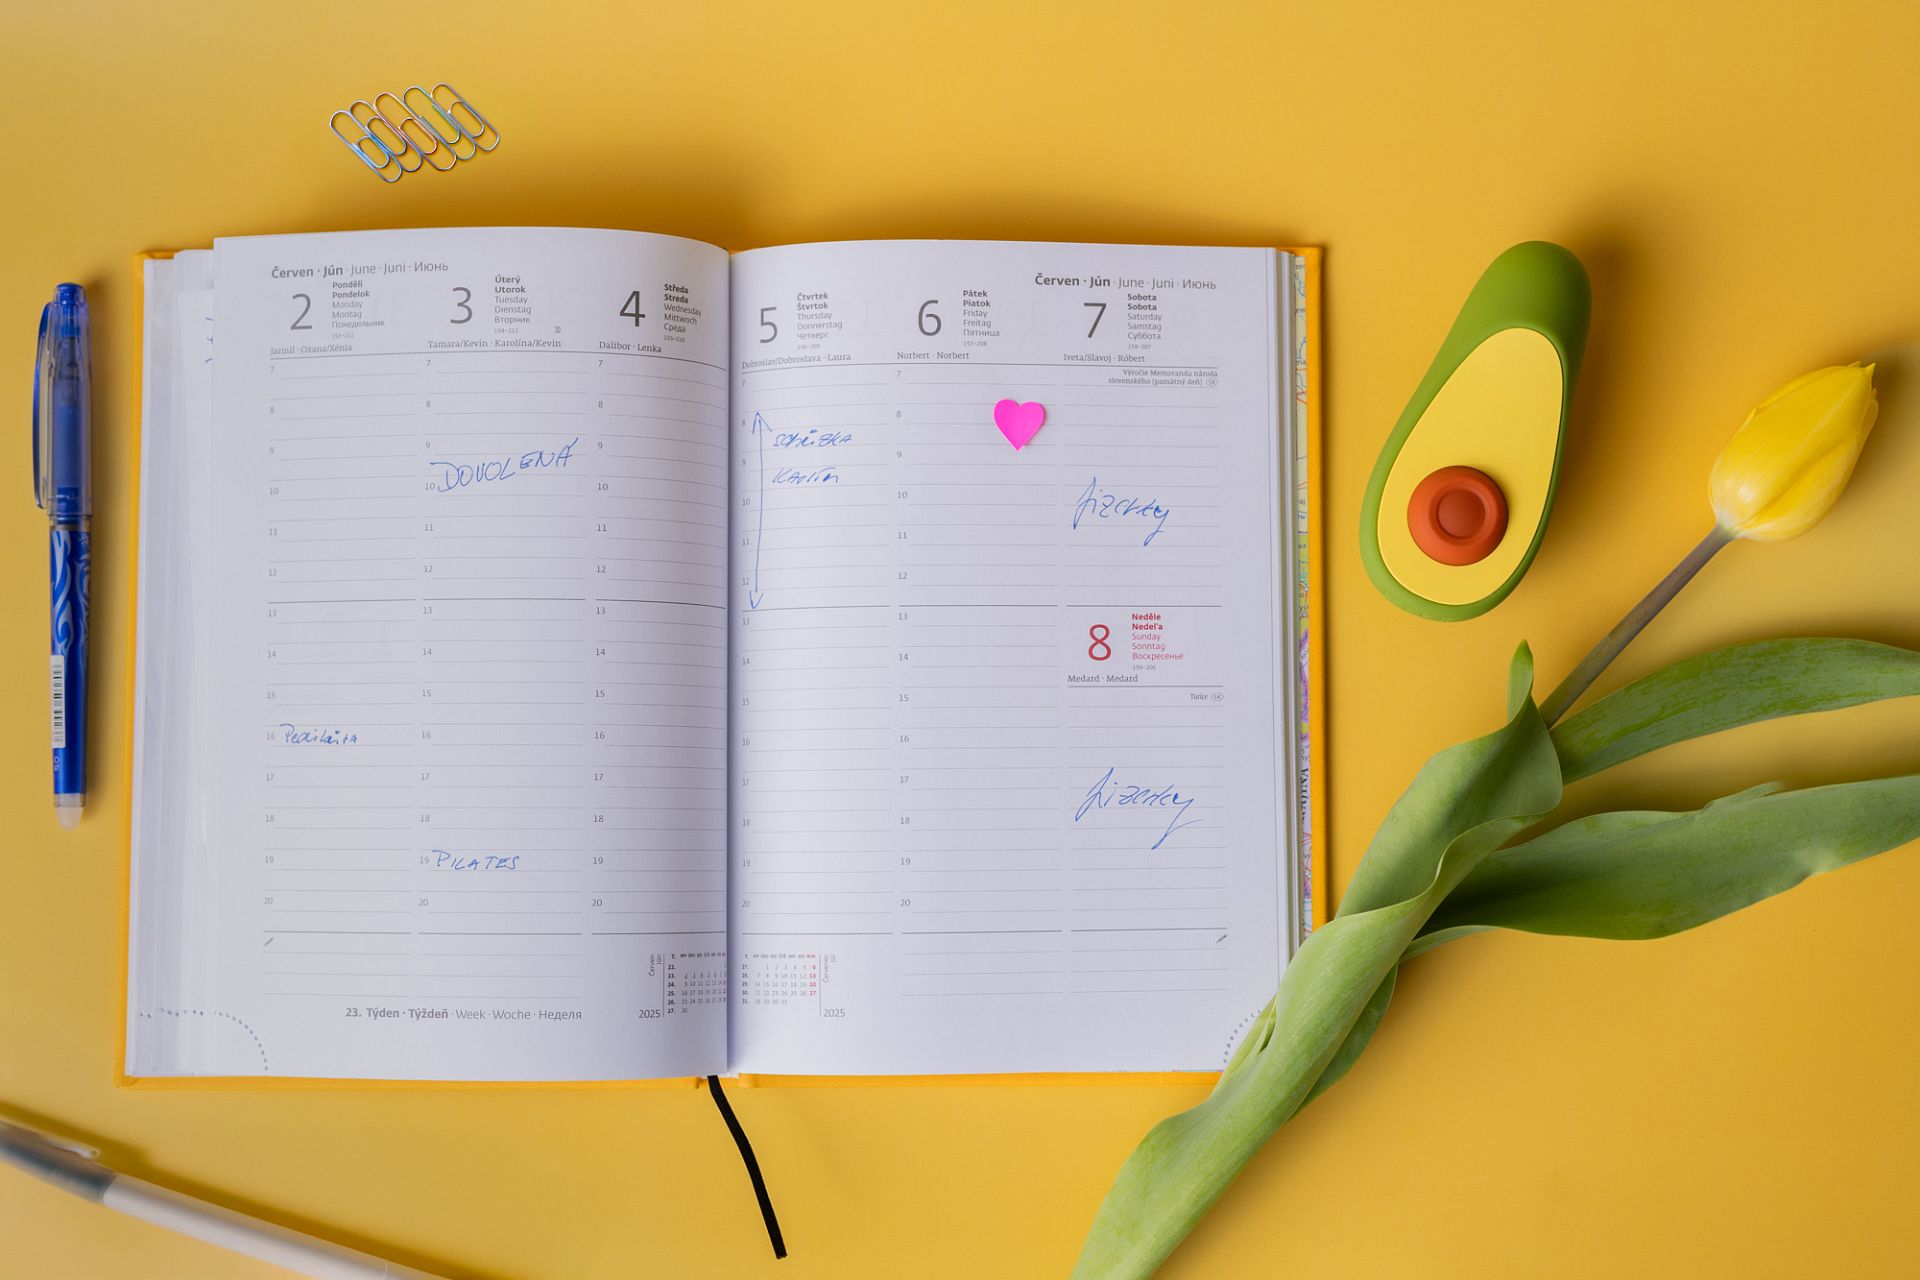 Červen · Jún · June · Juni · Июнь
2
Pondělí
Pondelok
Monday
Montag
Понедельник
153–212
Jarmil · Oxana/Xénia
3
Úterý
Utorok
Tuesday
Dienstag
Вторник
154–211
Tamara/Kevin · Karolína/Kevin
4
Středa
Streda
Wednesday
Mittwoch
Среда
155–210
Dalibor · Lenka
7
8
9
10
11
12
13
14
15
16 Pedikúra
17
18
19
20
7
8
9
DOVOLENÁ
10
11
12
13
14
15
16
17
18
19 PILATES
20
7
8
9
10
11
12
13
14
15
16
17
18
19
20
23. Týden · Týždeň · Week · Woche · Неделя
Červen
Jún
2025
Červen · Jún · June · Juni · Июнь
5
Čtvrtek
Štvrtok
Thursday
Donnerstag
Четверг
156–209
Dobroslav/Dobroslava · Laura
6
Pátek
Piatok
Friday
Freitag
Пятница
157–208
Norbert · Norbert
7
Sobota
Sobota
Saturday
Samstag
Суббота
158–207
Iveta/Slavoj · Róbert
Výročie Memoranda národa
slovenského (pamätný deň) SK
7
8
schůzka
9
Karlín
10
11
12
13
14
15
16
17
18
19
20
7
8
9
10
11
12
13
14
15
16
17
18
19
20
Jizerky
8
Neděle
Nedeľa
Sunday
Sonntag
Воскресенье
159–206
Medard · Medard
Turíce SK
Jizerky
Červenec
Júl
2025
05